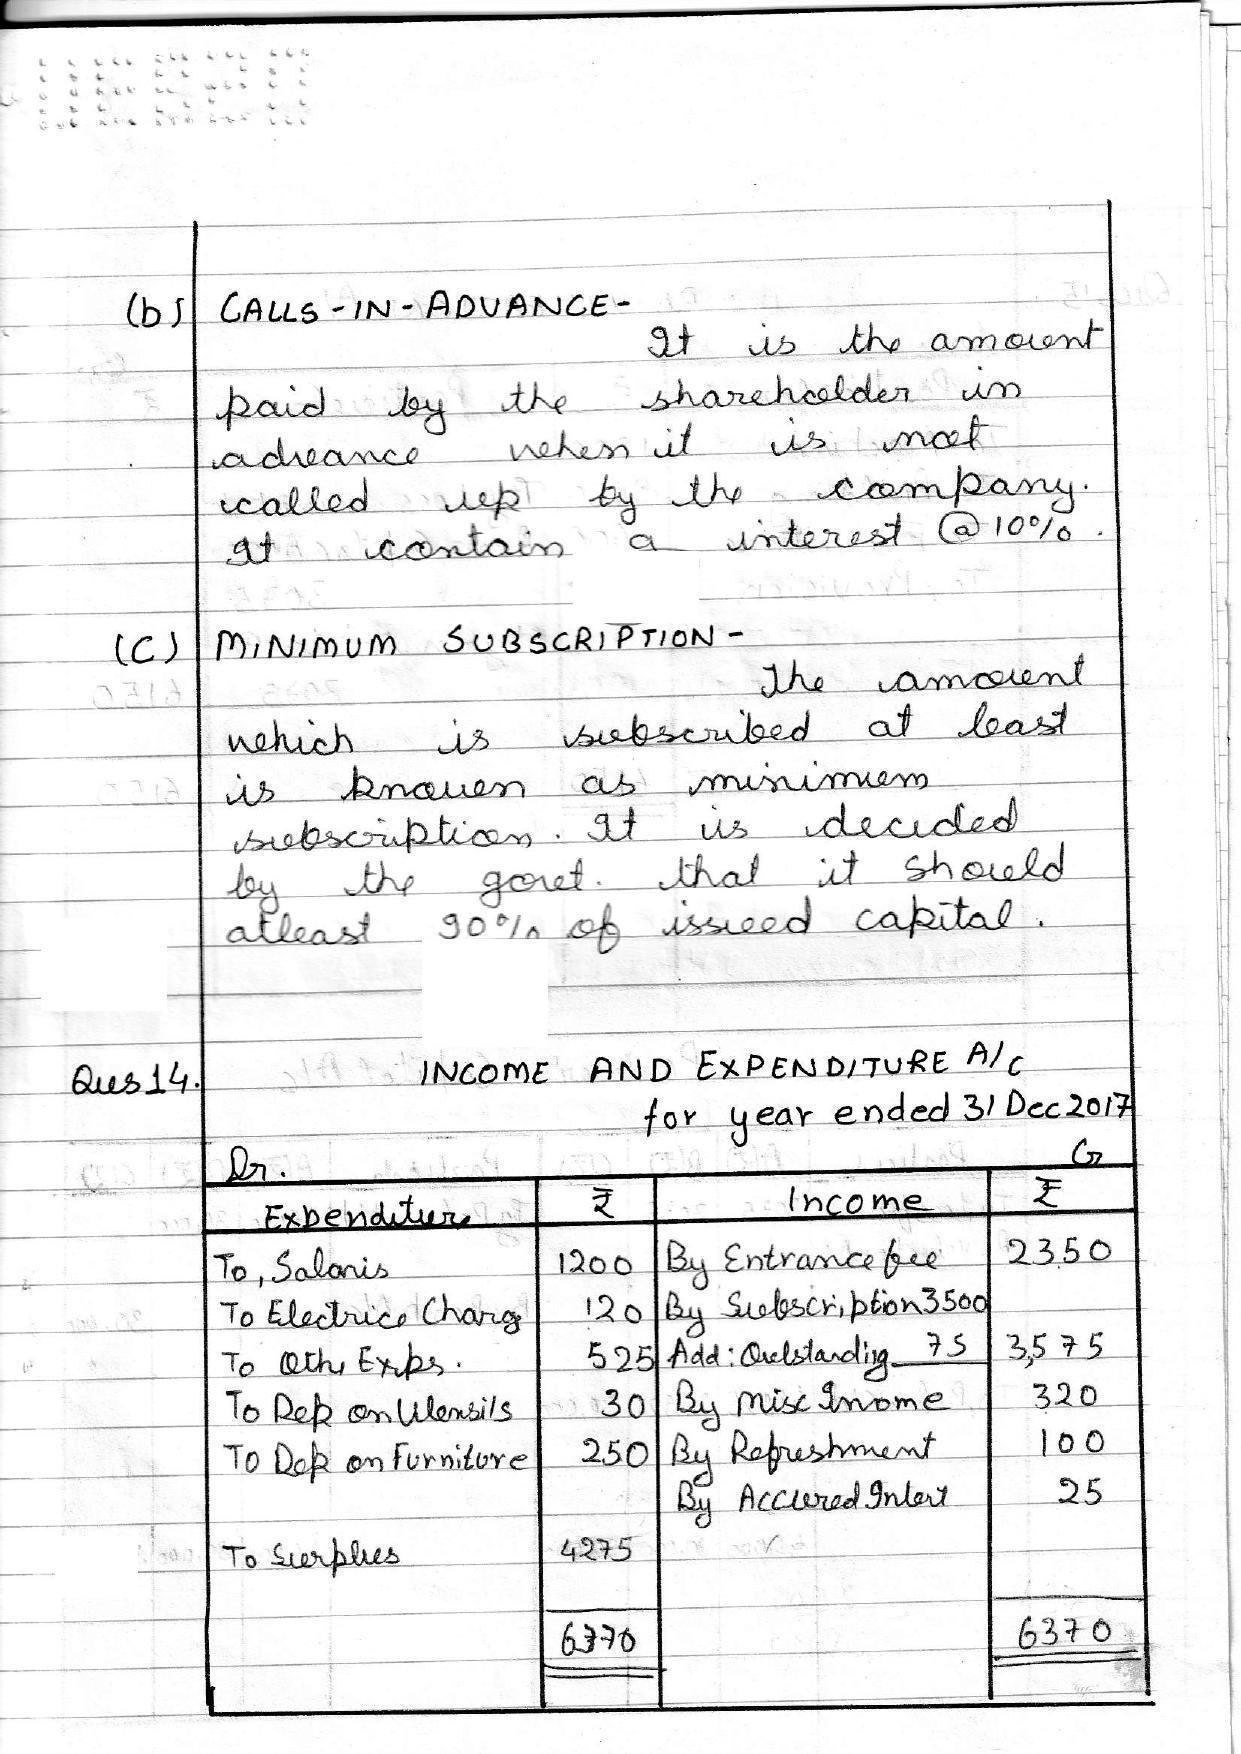 (b) CALLS-IN-ADVANCE-
It is the amount
paid by the shareholder in
advance when it is not
called up by the company.
It contain a interest @ 10%.
(C) MINIMUM SUBSCRIPTION-
The amount
which is subscribed at least
is known as minimum
subscription. It is decided
by the govt. that it should
atleast 90% of issued capital.
Ques 14. INCOME AND EXPENDITURE A/c
for year ended 31 Dec 2017
Dr. Cr
Expenditure ₹ Income ₹
To, Salaris 1200 By Entrance fee 2350
To Electrice Charg 120 By Subscription 3500
To Oth Exps. 525 Add: Outstanding 75 3,575
To Dep on Utensils 30 By Misc Inome 320
To Dep on Furniture 250 By Refreshment 100
By Accured Intert 25
To Surplus 4275
6370 6370